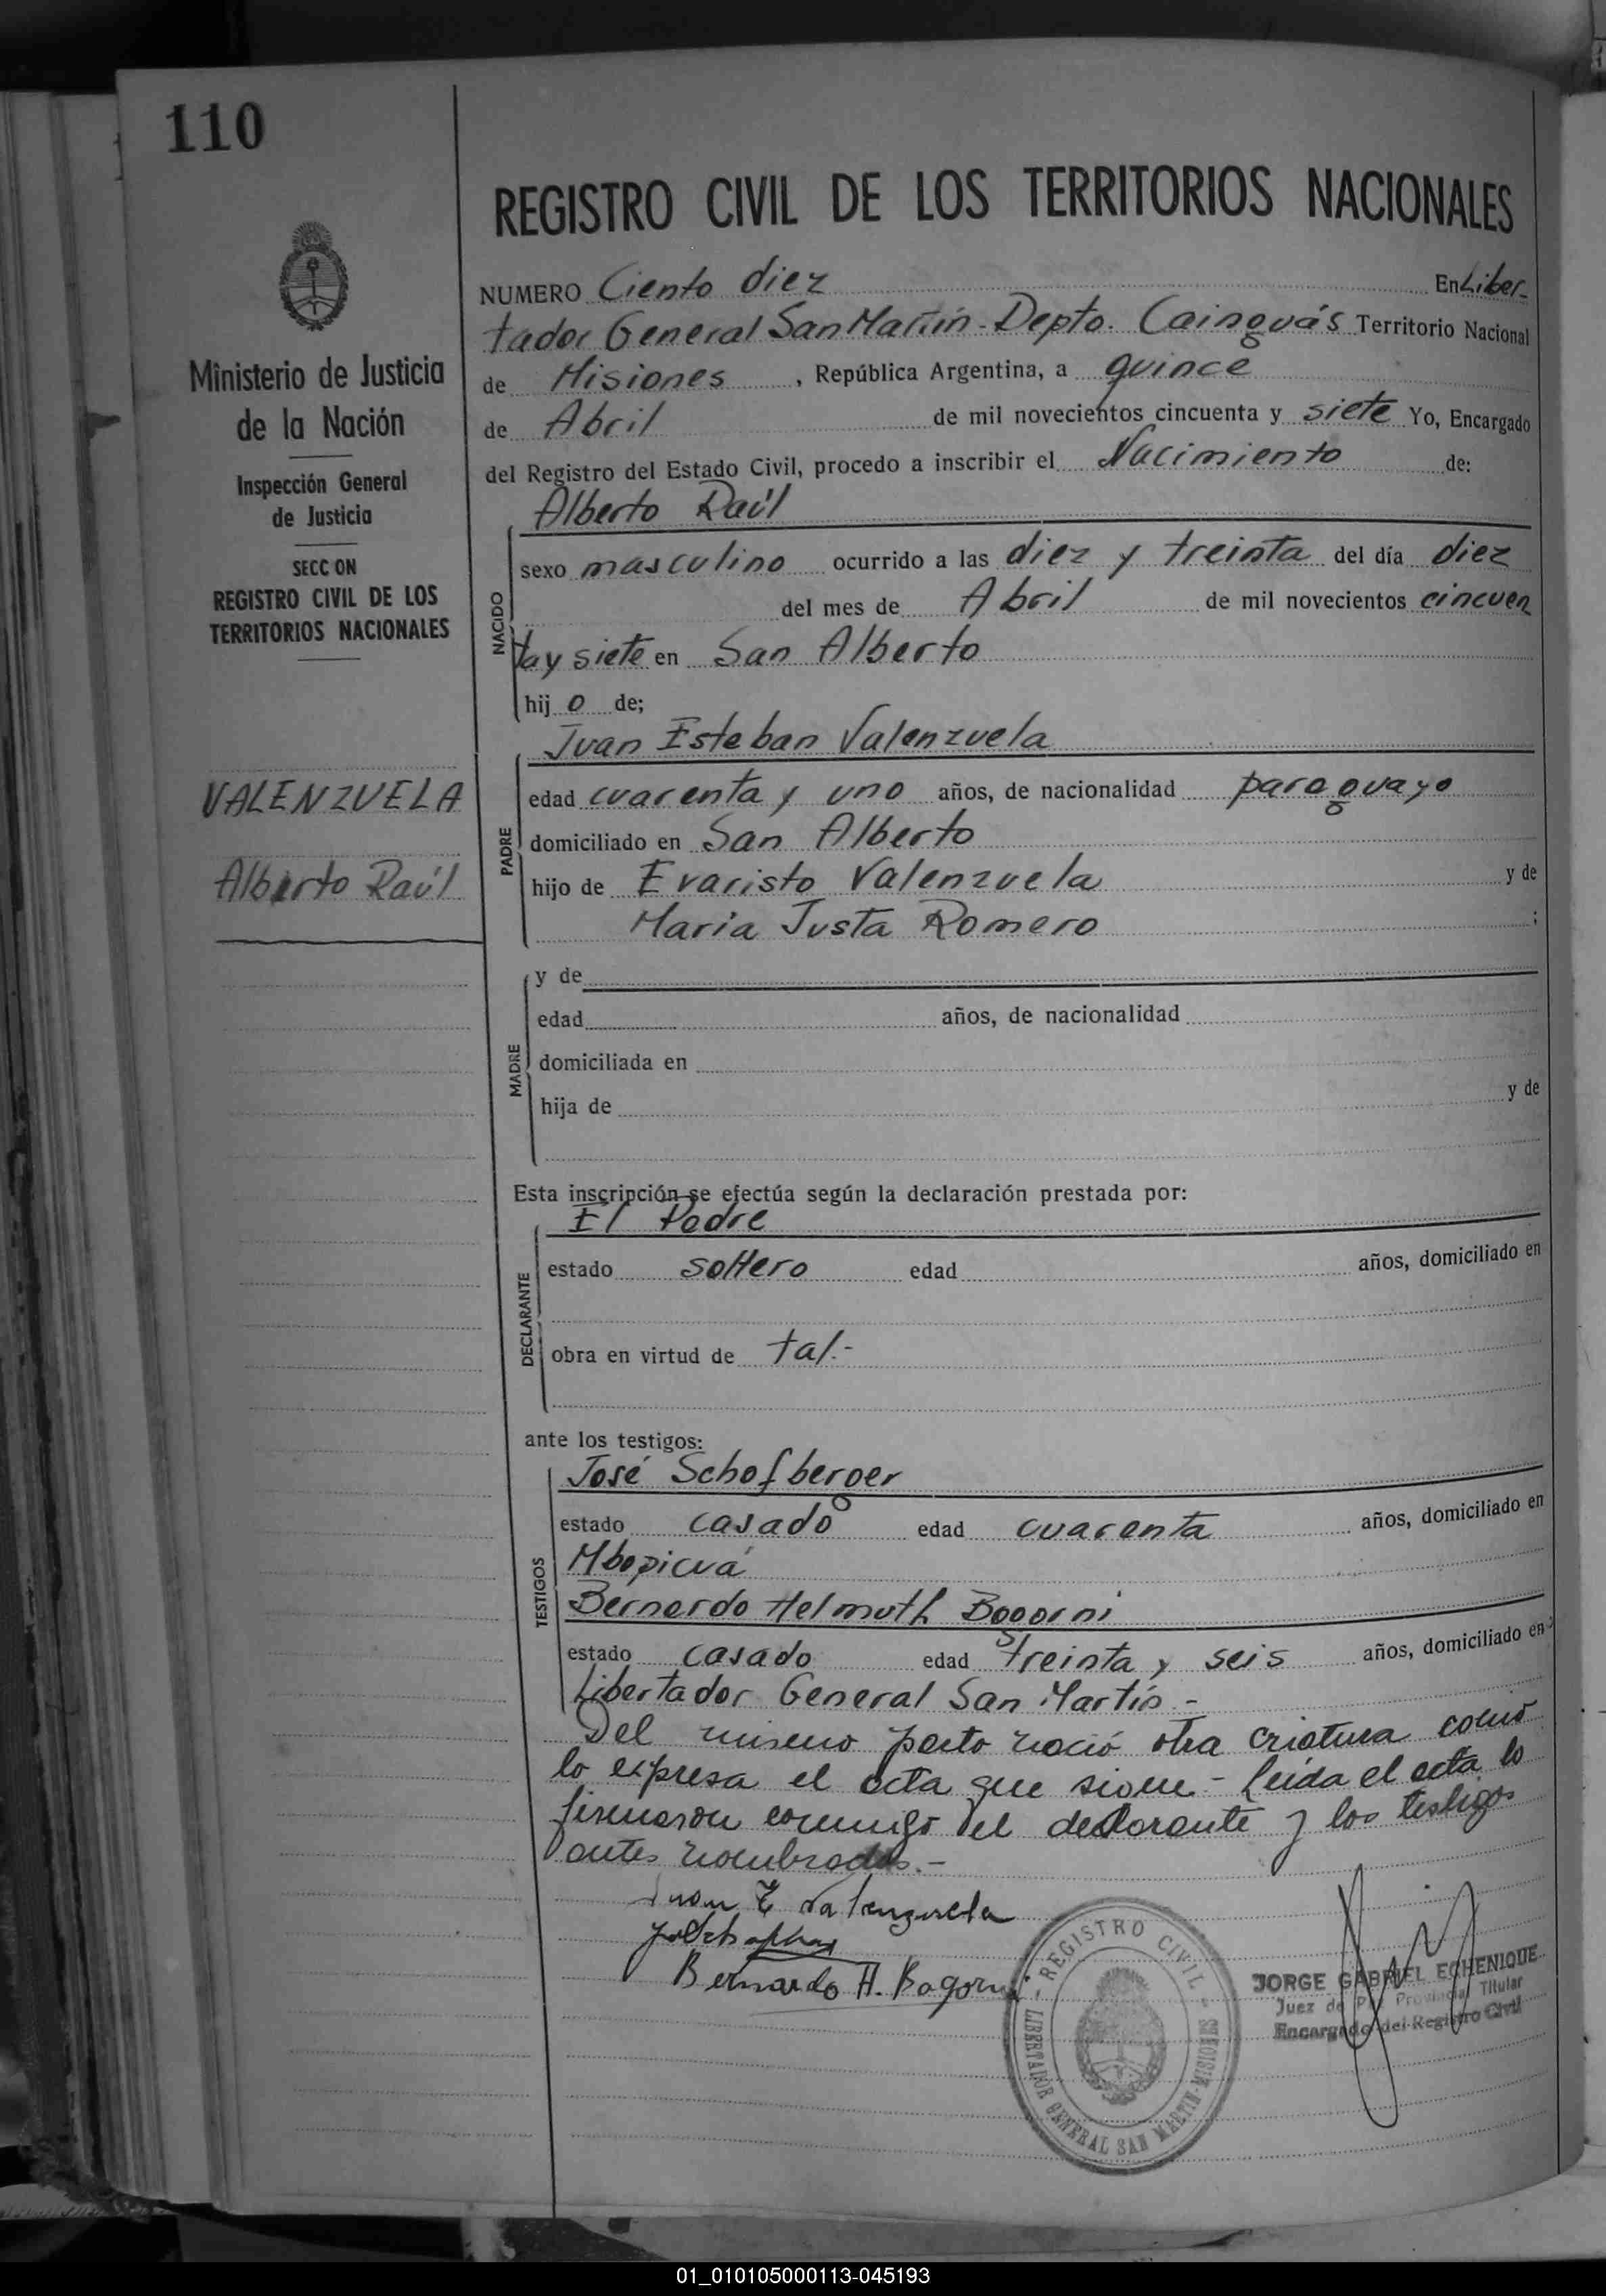 110
REGISTRO CIVIL DE LOS TERRITORIOS NACIONALES
Ministerio de Justicia
de la Nación
Inspección General
de Justicia
SECC ON
REGISTRO CIVIL DE LOS
TERRITORIOS NACIONALES
VALENZUELA
Alberto Raúl
NUMERO Ciento diez En Liber-
tador General San Martín - Depto. Cainguás Territorio Nacional
de Misiones , República Argentina, a quince
de Abril de mil novecientos cincuenta y siete Yo, Encargado
del Registro del Estado Civil, procedo a inscribir el Nacimiento de:
Alberto Raúl
NACIDO
sexo masculino ocurrido a las diez y treinta del día diez
del mes de Abril de mil novecientos cincuen
ta y siete en San Alberto
hij o de;
Juan Esteban Valenzuela
PADRE
edad cuarenta y uno años, de nacionalidad paraguayo
domiciliado en San Alberto
hijo de Evaristo Valenzuela y de
Maria Justa Romero ;
MADRE
y de
edad años, de nacionalidad
domiciliada en
hija de y de
Esta inscripción se efectúa según la declaración prestada por:
El Padre
DECLARANTE
estado soltero edad años, domiciliado en
obra en virtud de tal.-
ante los testigos:
José Schofberger
TESTIGOS
estado casado edad cuarenta años, domiciliado en
Mbopicuá
Bernardo Helmuth Bogorni
estado casado edad treinta y seis años, domiciliado en
Libertador General San Martín -
Del mismo parto nació otra criatura como
lo expresa el acta que sigue - Leida el acta lo
firmaron conmigo el declarante y los testigos
antes nombrados.-
Juan E Valenzuela
Bernardo H. Bogorni
REGISTRO CIVIL - LIBERTADOR GENERAL SAN MARTIN - MISIONES
JORGE GABRIEL ECHENIQUE
Juez de Paz Provincial Titular
Encargado del Registro Civil
01_010105000113-045193